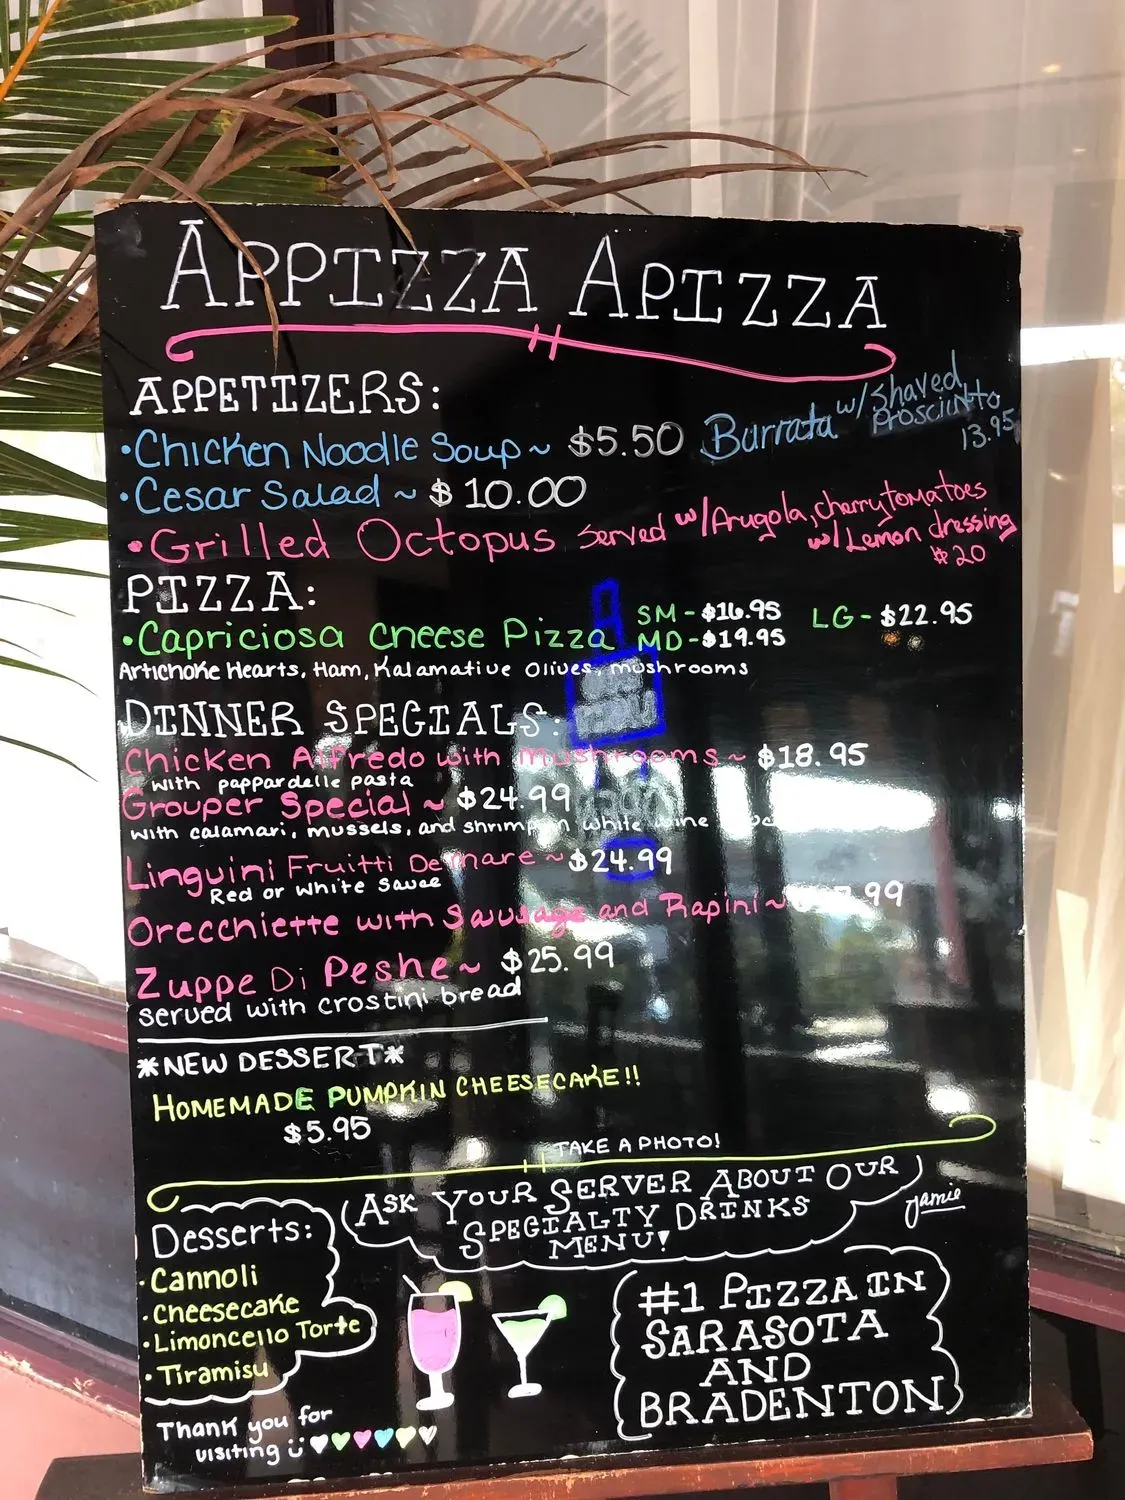 APPIZZA APIZZA
APPETIZERS:
•Chicken Noodle Soup ~ $5.50
Burrata w/ shaved
prosciutto
13.95
•Cesar Salad ~ $10.00
•Grilled Octopus served w/ Arugola, cherry tomatoes
w/ Lemon dressing
$20
PIZZA:
•Capriciosa cheese Pizza SM-$16.95 LG-$22.95
MD-$19.95
Artichoke Hearts, Ham, Kalamative Olives, mushrooms
DINNER SPECIALS:
Chicken Alfredo with mushrooms ~ $18.95
with pappardelle pasta
Grouper Special ~ $24.99
with calamari, mussels, and shrimp in white wine
Linguini Fruitti De mare ~ $24.99
Red or White Sauce
Orecchiette with Sausage and Rapini ~
Zuppe Di Peshe ~ $25.99
served with crostini bread
*NEW DESSERT*
HOMEMADE PUMPKIN CHEESECAKE!!
$5.95
TAKE A PHOTO!
ASK YOUR SERVER ABOUT OUR
SPECIALTY DRINKS
MENU!
Jamie
Desserts:
•Cannoli
•Cheesecake
•Limoncello Torte
•Tiramisu
#1 PIZZA IN
SARASOTA
AND
BRADENTON
Thank you for
visiting